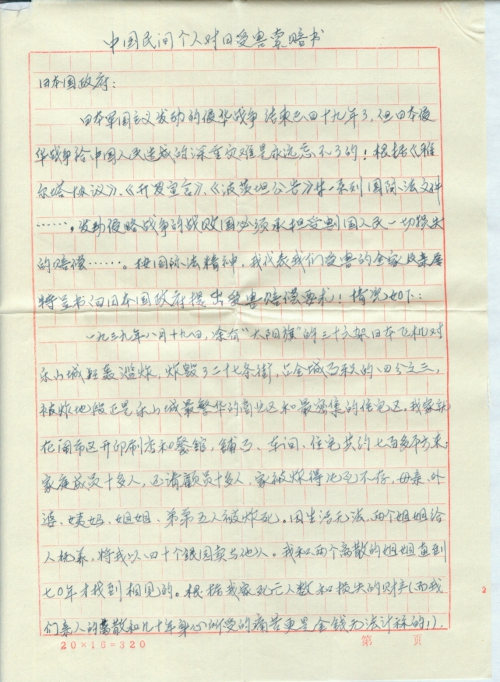 中国民间个人对日受害索赔书
日本国政府：
日本军国主义发动的侵华战争结束已四十九年了，但日本侵
华战争给中国人民造成的深重灾难是永远忘不了的！根据《雅
尔塔协议》、《开罗宣言》、《波茨坦公告》等一系列国际法文件
……，发动侵略战争的战败国必须承担受害国人民一切损失
的赔偿……。按国际法精神，我代表我们受害的全家及亲属
特立书向日本国政府提出受害赔偿要求！情况如下：
一九三九年八月十九日，涂有“太阳旗”的三十六架日本飞机对
乐山城狂轰滥炸，炸毁了二十七条街，占全城面积的四分之三，
被炸地段正是乐山城最繁华的商业区和最密集的住宅区。我家就
在闹市区开印刷店和餐馆，铺面、车间、住宅共约七百多方米；
家庭成员十多人，还请雇员十多人，家被炸得片瓦不存，母亲、外
婆、姨妈、姐姐、弟弟五人被炸死。因生活无法，两个姐姐给
人抚养，将我以四十个银圆卖与他人。我和两个离散的姐姐直到
七〇年才找到相见的。根据我家死亡人数和损失的财产（而我
们亲人的离散和几十年身心所受的痛苦更是金钱无法计称的！），
20×16=320
第 页
2